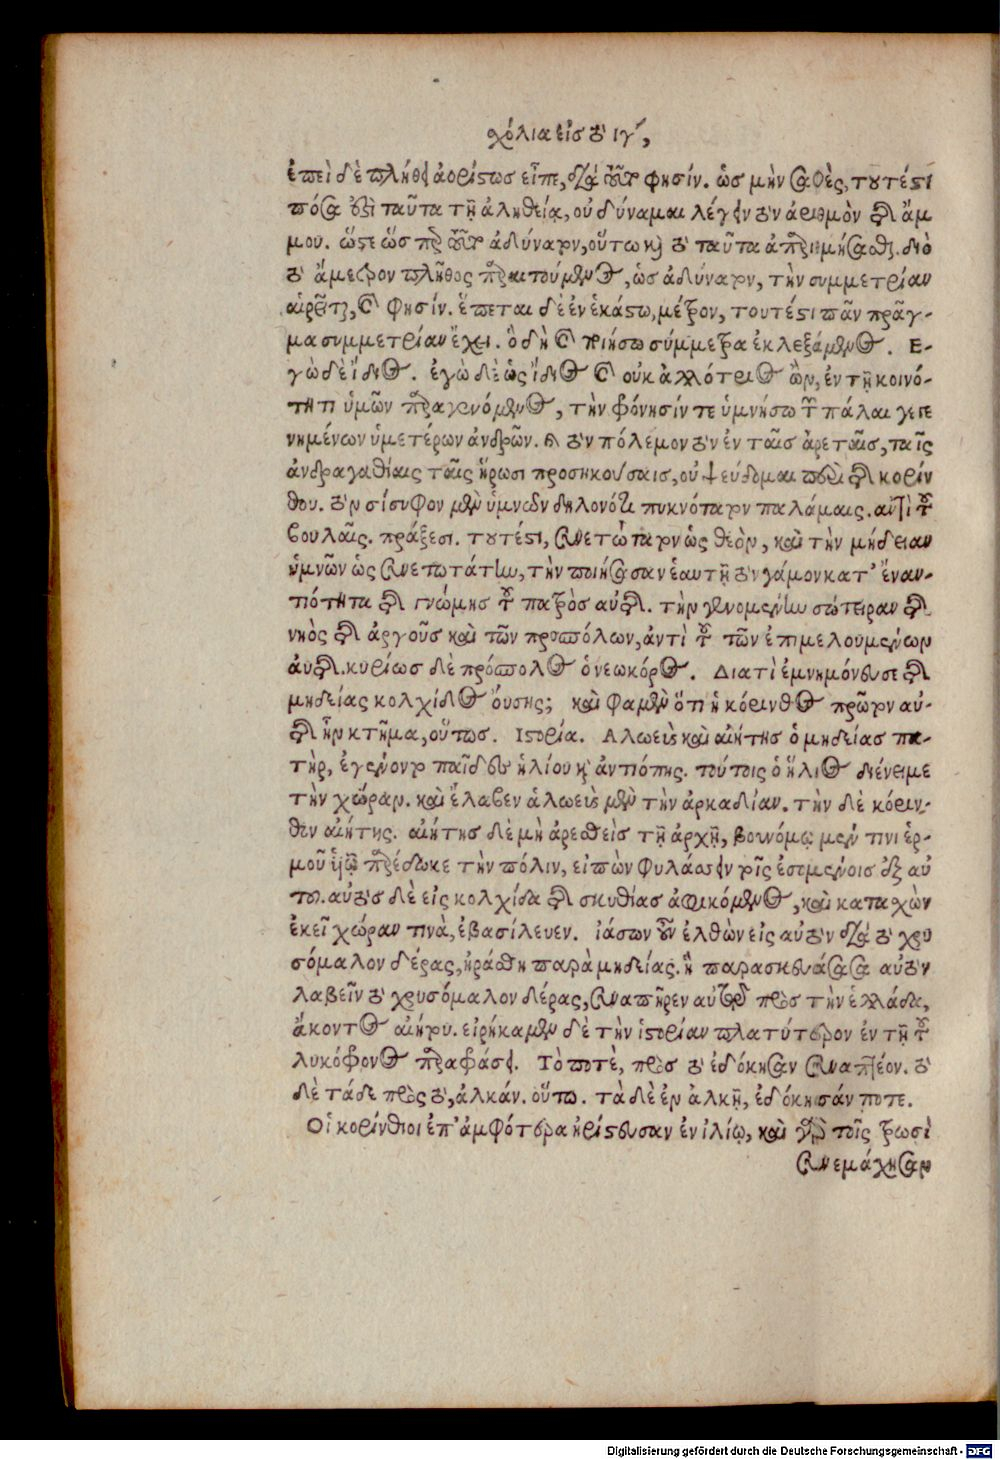 χόλια εἰς τὸ ιγʹ,
ἐπεὶ δὲ πλήθει ἀορίστως εἶπε, διὰ τοῦτο φησίν. ὡς μὴν σαφὲς, τουτέστι
πόσα ἐστὶ ταῦτα τῇ ἀληθείᾳ, οὐ δύναμαι λέγειν τὸν ἀριθμὸν τοῦ ἄμ
μου. ὥστε ὡς πρὸς τοῦτο ἀδύνατον, οὕτω καὶ τὸ ταῦτα ἀπαριθμήσασθαι. διὸ
τὸ ἄμετρον πλῆθος παραιτούμενος, ὡς ἀδύνατον, τὴν συμμετρίαν
αἱρεῖται, καὶ φησίν. ἕπεται δὲ ἐν ἑκάστῳ, μέτρον, τουτέστι πᾶν πρᾶγ-
μα συμμετρίαν ἔχει. ὃ δὴ καὶ ποιήσω σύμμετρα ἐκλεξάμενος. Ε-
γὼ δὲ ἴδιος. ἐγὼ δὲ ὡς ἴδιος καὶ οὐκ ἀλλότριος ὢν, ἐν τῇ κοινό-
τητι ὑμῶν παραγενόμενος, τὴν φρόνησίν τε ὑμνήσω τῶν πάλαι γεγε
νημένων ὑμετέρων ἀνδρῶν. καὶ τὸν πόλεμον τὸν ἐν ταῖς ἀρεταῖς, ταῖς
ἀνδραγαθίαις ταῖς ἥρωσι προσηκούσαις, οὐ ψεύδομαι περὶ τοῦ κορίν
θου. τὸν σίσυφον μὲν ὑμνῶν δηλονότι πυκνότατον παλάμαις. ἀντὶ τοῦ
βουλαῖς. πράξεσι. τουτέστι, συνετώτατον ὡς θεὸν, καὶ τὴν μήδειαν
ὑμνῶν ὡς συνετωτάτην, τὴν ποιήσασαν ἑαυτῇ τὸν γάμον κατ' ἐναν-
τιότητα τοῦ γνώμης τοῦ πατρὸς αὐτοῦ. τὴν γενομένην σώτειραν τοῦ
νηὸς τοῦ ἀργοῦς καὶ τῶν προπόλων, ἀντὶ τοῦ τῶν ἐπιμελουμένων
αὐτοῦ. κυρίως δὲ πρόπολος ὁ νεωκόρος. Διατὶ ἐμνημόνευσε τοῦ
μηδείας κολχίδος οὔσης; καὶ φαμὲν ὅτι ἡ κόρινθος πρῶτον αὐ-
τοῦ ἦν κτῆμα, οὕτως. Ιστορία. Αλωεὺς καὶ αἰήτης ὁ μηδείας πα-
τὴρ, ἐγένοντο παῖδες ἡλίου καὶ ἀντιόπης. τούτοις ὁ ἥλιος διένειμε
τὴν χώραν. καὶ ἔλαβεν ἀλωεὺς μὲν τὴν ἀρκαδίαν. τὴν δὲ κόριν-
θον αἰήτης. αἰήτης δὲ μὴ ἀρεσθεὶς τῇ ἀρχῇ, βουνόμῳ μέν τινι ἑρ-
μοῦ υἱῷ παρέδωκε τὴν πόλιν, εἰπὼν φυλάσσειν τοῖς ἐσομένοις ἐξ αὐ
τοῦ. αὐτὸς δὲ εἰς κολχίδα τοῦ σκυθίας ἀφικόμενος, καὶ κατασχὼν
ἐκεῖ χώραν τινὰ, ἐβασίλευεν. ἰάσων οὖν ἐλθὼν εἰς αὐτὸν διὰ τὸ χρυ
σόμαλον δέρας, ἠράσθη παρὰ μηδείας. ἣ παρασκευάσασα αὐτὸν
λαβεῖν τὸ χρυσόμαλον δέρας, συναπῆρεν αὐτῷ πρὸς τὴν ἑλλάδα,
ἄκοντος αἰήτου. εἰρήκαμεν δὲ τὴν ἱστορίαν πλατύτερον ἐν τῇ τοῦ
λυκόφρονος παραφράσει. Τὸ ποτὲ, πρὸς τὸ ἐδόκησαν συναπτέον. τὸ
δὲ τάδε πρὸς τὸ, ἀλκάν. οὕτω. τὰ δὲ ἐν ἀλκῇ, ἐδόκησάν ποτε.
Οἱ κορίνθιοι ἐπ' ἀμφότερα ἠρίστευσαν ἐν ἰλίῳ, καὶ γὰρ τοῖς τρωσὶ
συνεμάχησαν
Digitalisierung gefördert durch die Deutsche Forschungsgemeinschaft - DFG